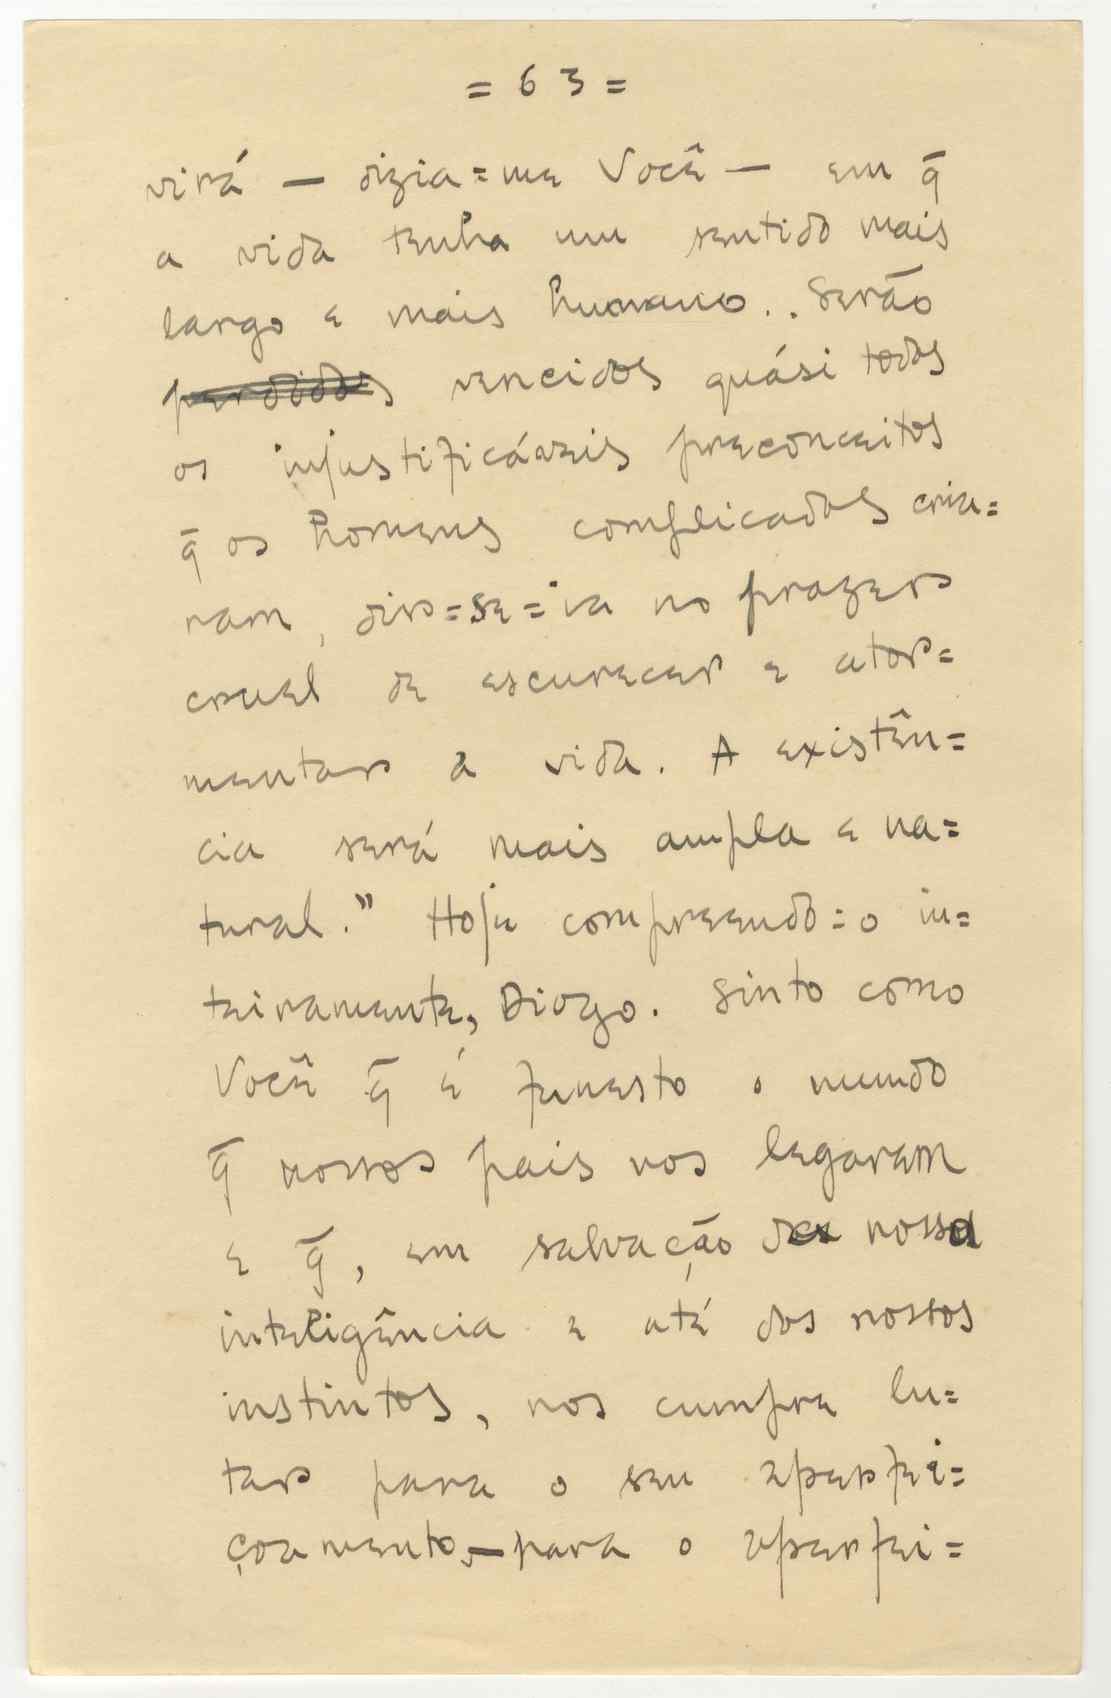 = 63 =
virá — dizia=me Você — em q̄
a vida tenha um sentido mais
largo e mais humano.. Serão
perdidos vencidos quási todos
os injustificáveis preconceitos
q̄ os homens complicados cria=
ram, dir=se=ia no prazer
cruel de escurecer e ator=
mentar a vida. A existên=
cia será mais ampla e na=
tural." Hoje compreendo=o in=
teiramente, Diogo. Sinto como
Você q̄ é funesto o mundo
q̄ nossos pais nos legaram
e q̄, em salvação da nossa
inteligência e até dos nossos
instintos, nos cumpre lu=
tar para o seu aperfei=
çoamento,—para o aperfei=